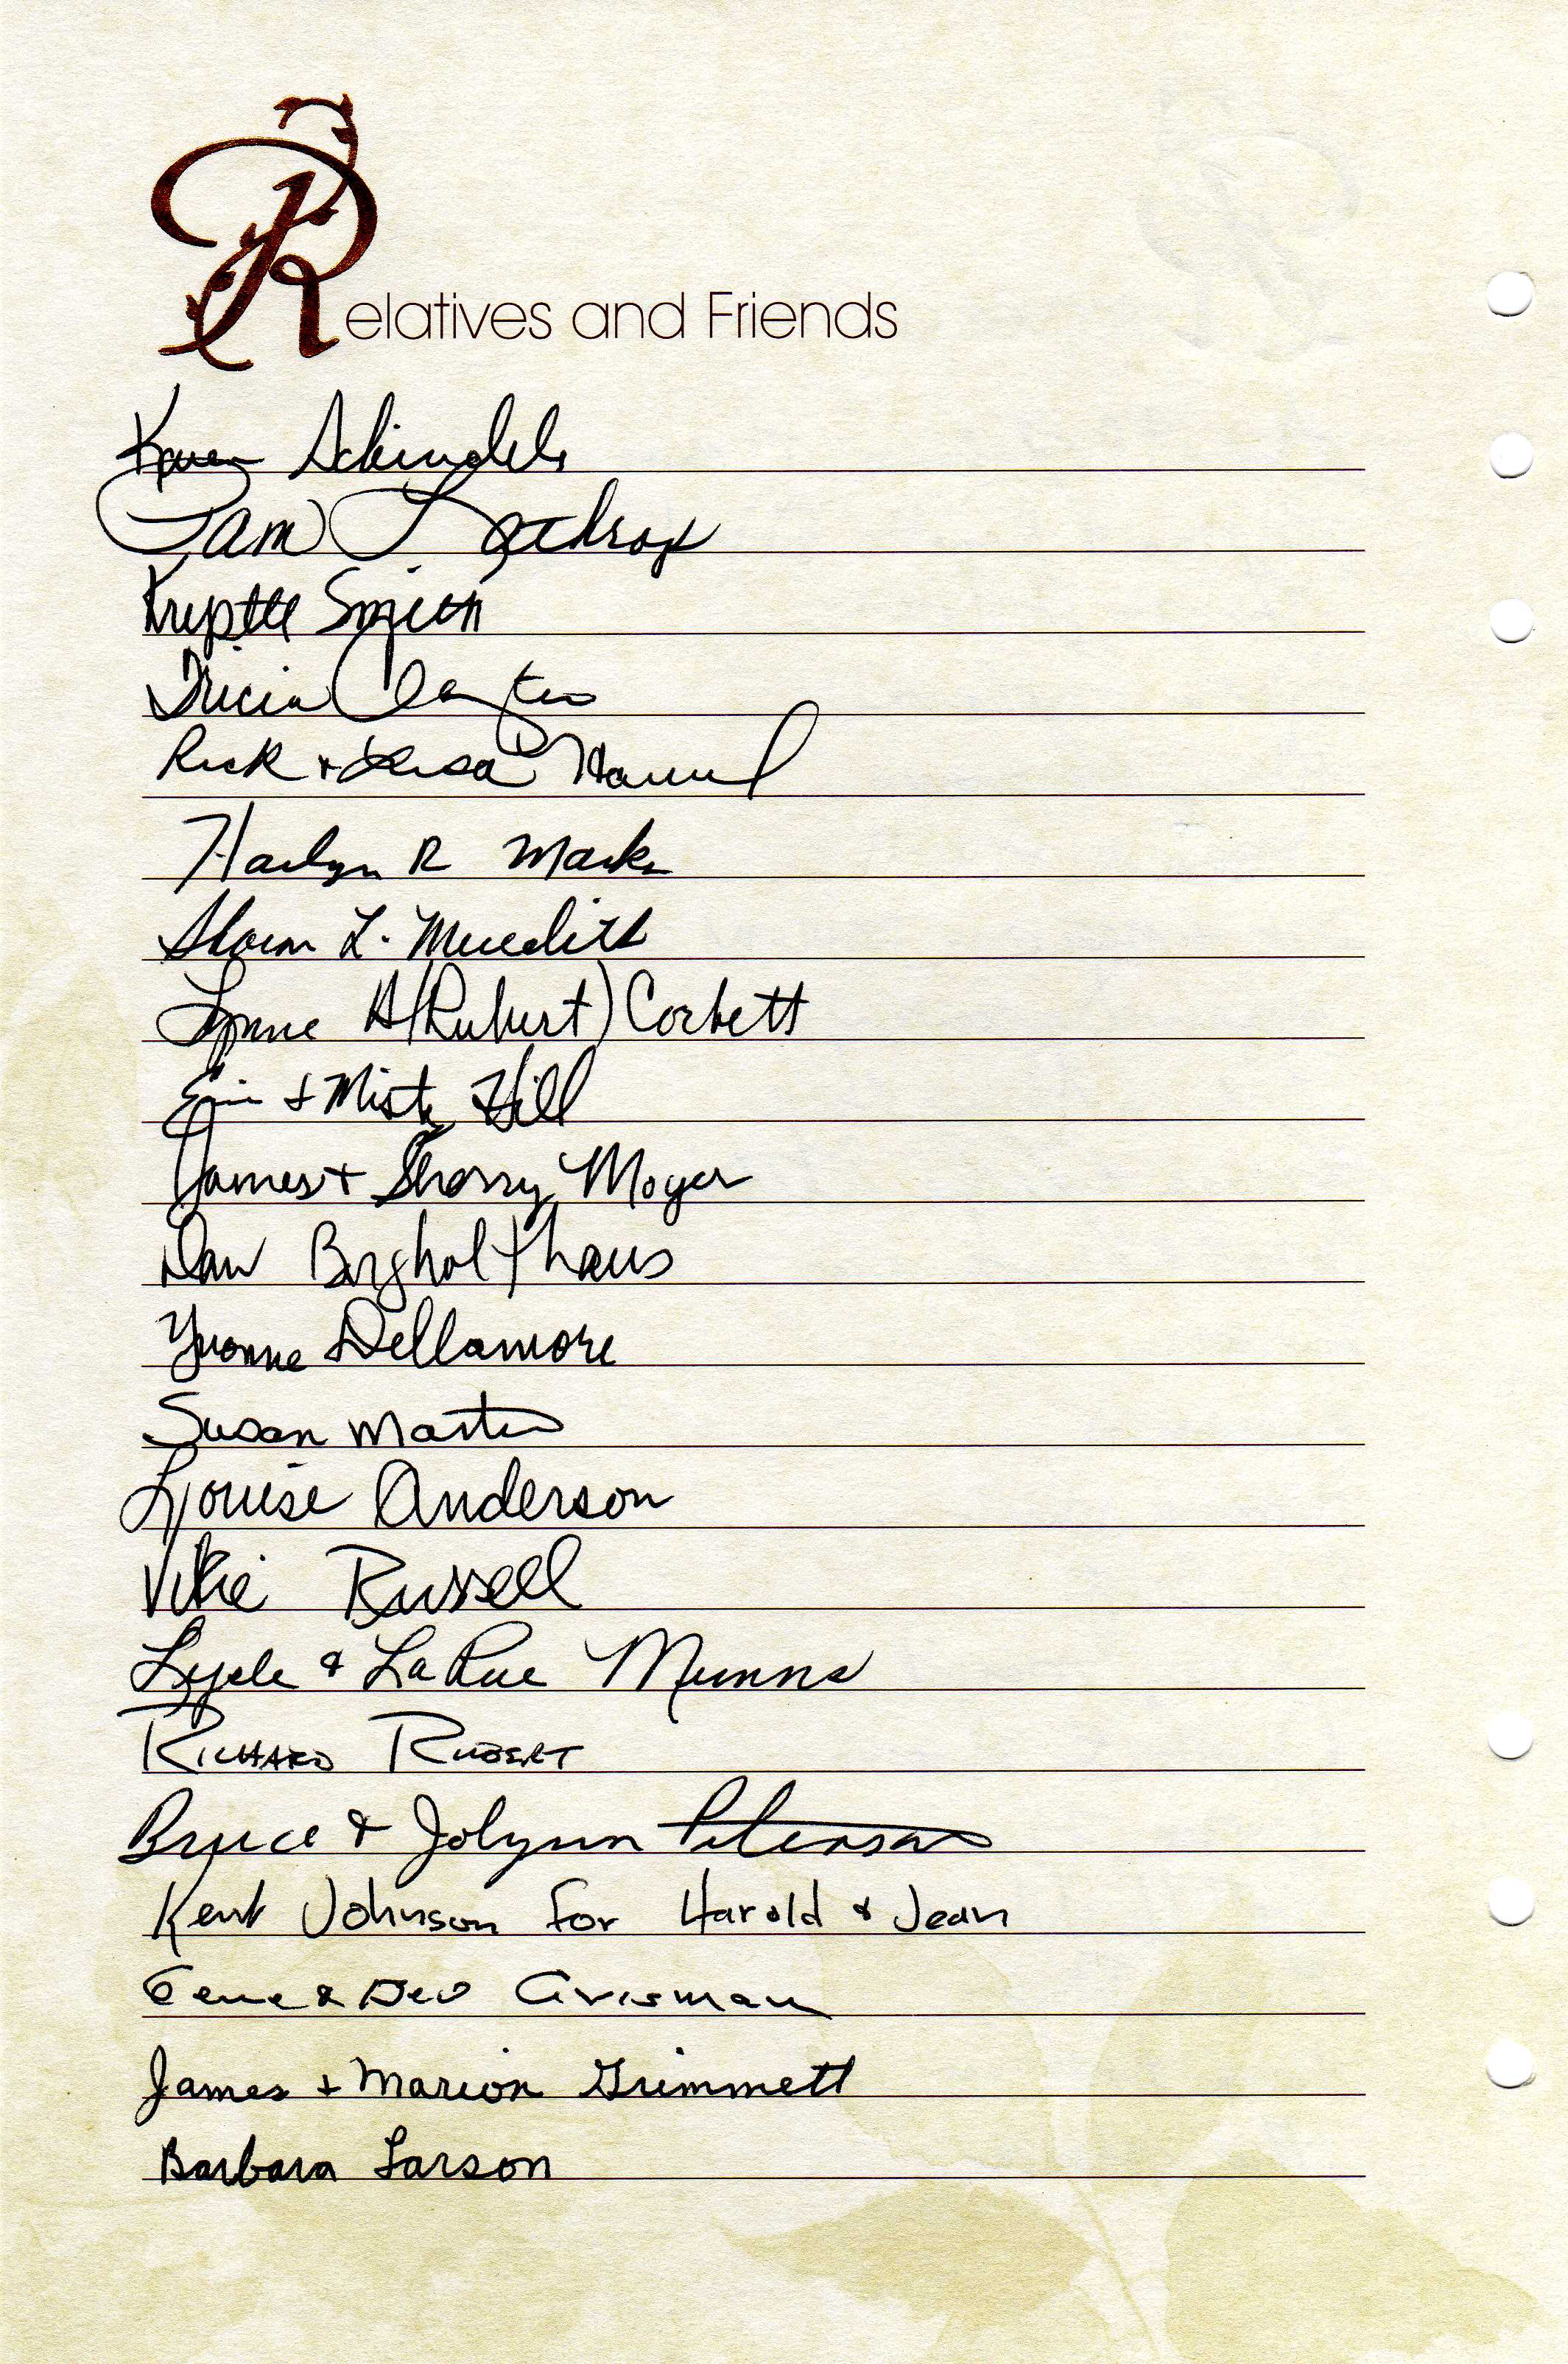 Relatives and Friends
Karen Schindele
Pam Lothrop
Krystle Smith
Tricia Clayton
Rick + Lisa
Harlyn R Marks
L. Meredith
Lynne H (Rubert) Corbett
+ Misty Hill
James + Sherry Moyer
Dan Borgholthaus
Yvonne Dellamore
Susan Martin
Louise Anderson
Vikie Russell
Lysle & LaRue Munns
RICHARD RUBERT
Bruce & Jolynn Peterson
Kent Johnson for Harold & Jean
Gene & Dev Crisman
James + Marion Grimmett
Barbara Larson